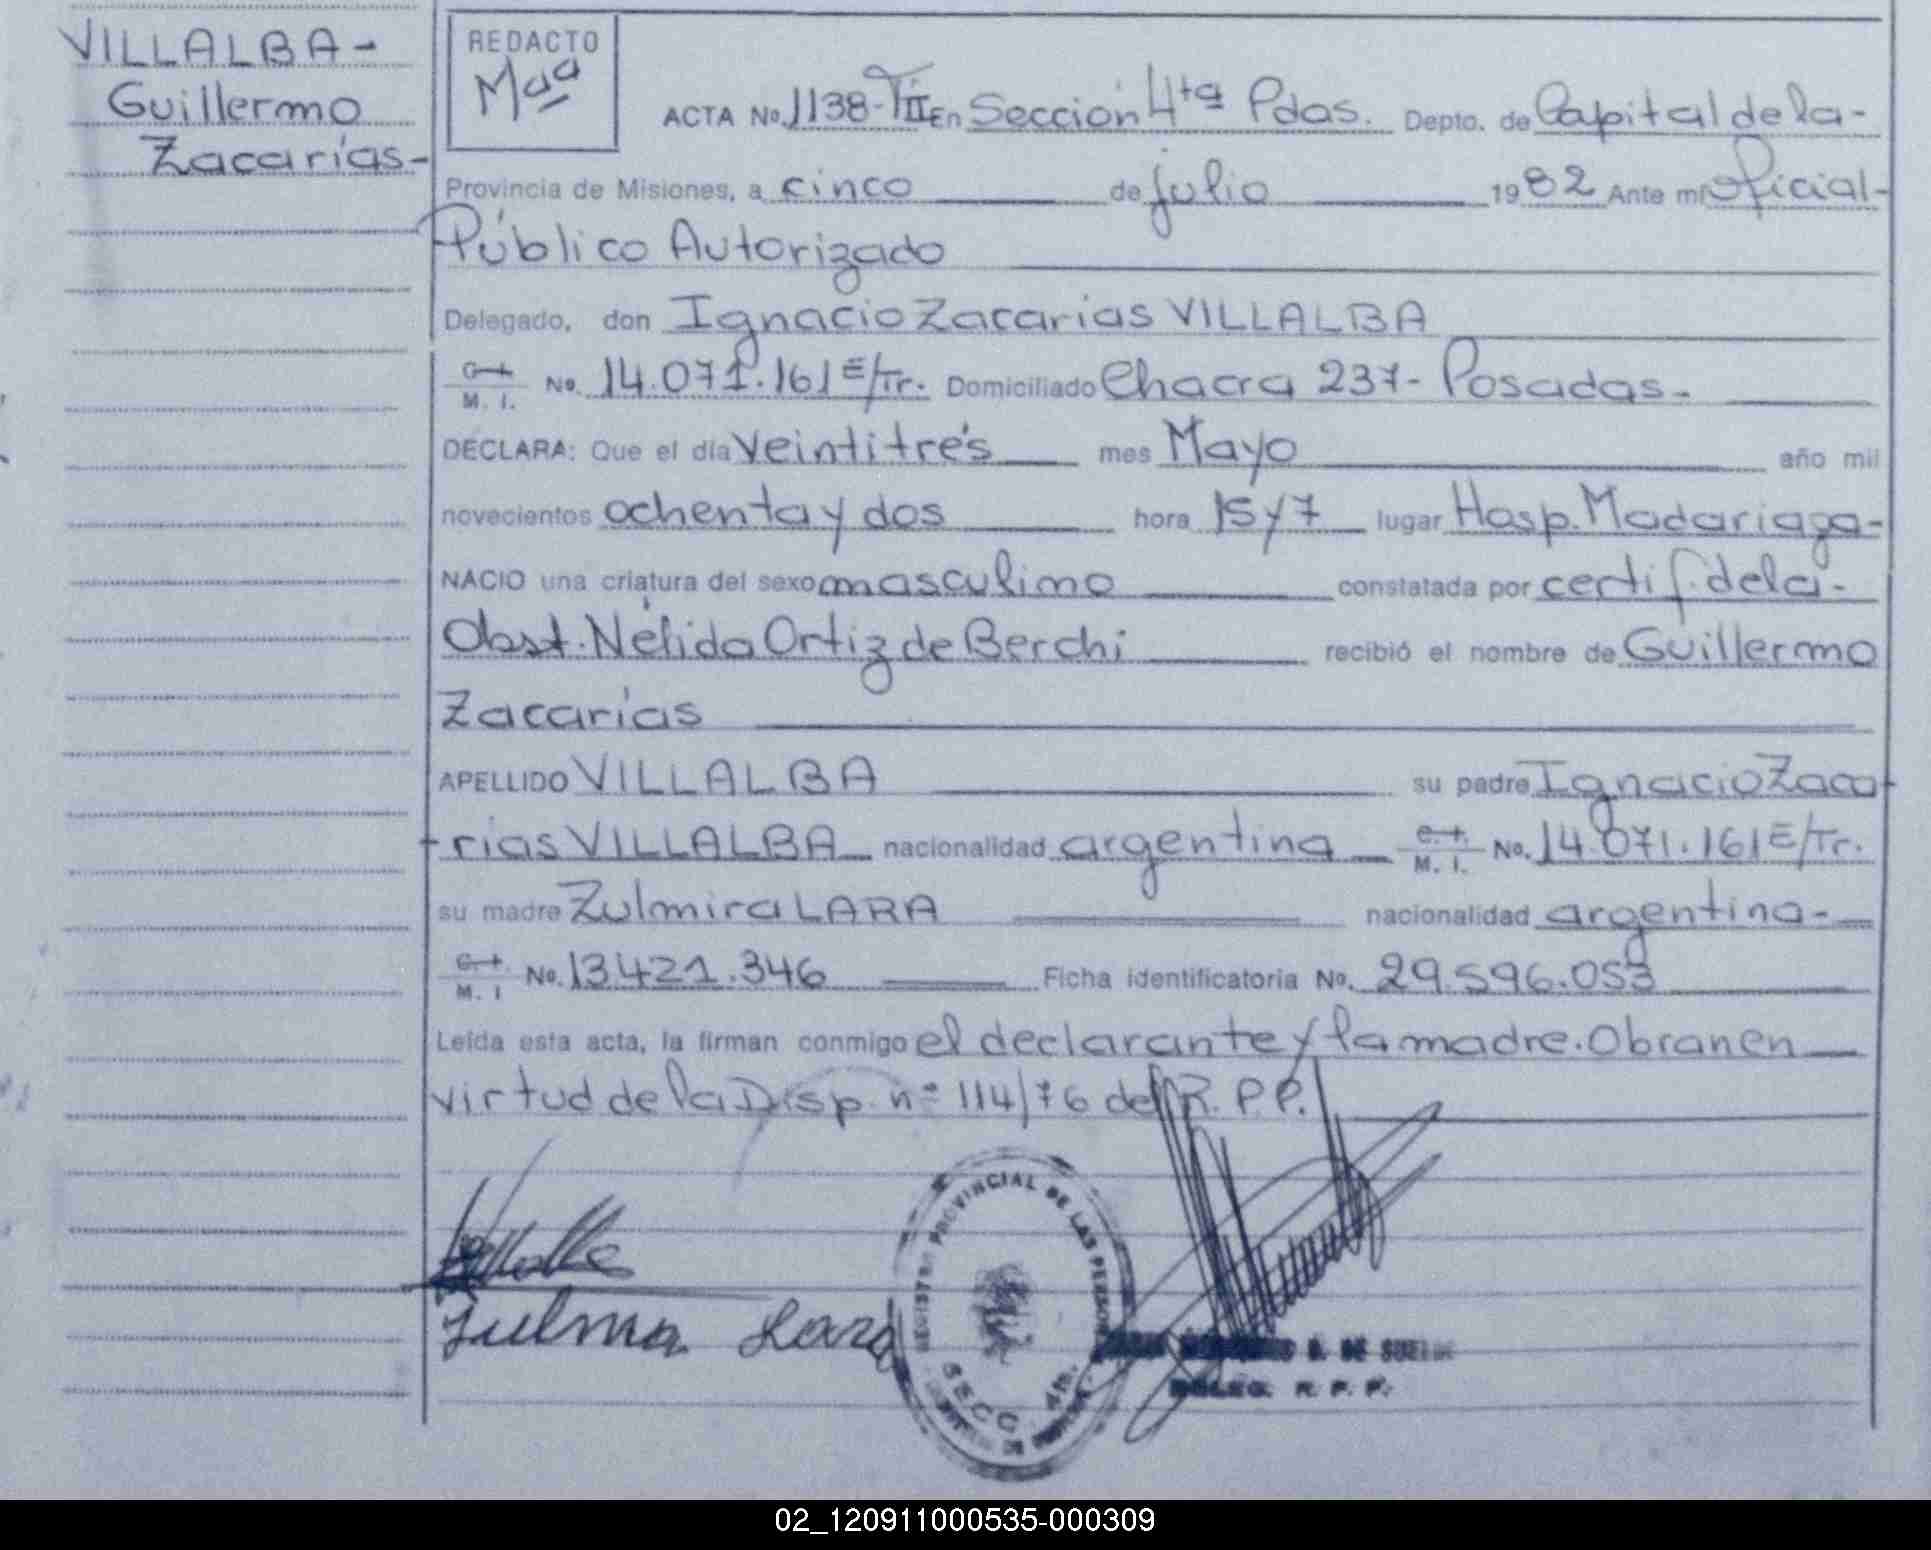 VILLALBA-
Guillermo
Zacarías-
REDACTO
Mªª
ACTA No. 1138-TII En Sección 4ta Pdas. Depto. de Capital de la-
Provincia de Misiones, a cinco de julio 1982 Ante mí Oficial-
Público Autorizado
Delegado, don Ignacio Zacarias VILLALBA
C.I. M. I. No. 14.071.161 E/Tr. Domiciliado Chacra 237- Posadas-
DECLARA: Que el día veintitrés mes Mayo año mil
novecientos ochenta y dos hora 15 y 7 lugar Hosp. Madariaga-
NACIO una criatura del sexo masculino constatada por certif. de la-
Obst. Nélida Ortiz de Berchi recibió el nombre de Guillermo
Zacarías
APELLIDO VILLALBA su padre Ignacio Zaca
rias VILLALBA nacionalidad argentina C.I. M. I. No. 14.071.161 E/Tr.
su madre Zulmira LARA nacionalidad argentina-
C.I. M. I No. 13.421.346 Ficha identificatoria No. 29.596.053
Leída esta acta, la firman conmigo el declarante y la madre. Obran en
virtud de la Disp. nº 114/76 del R.P.P.
Zulma Lara
REGISTRO PROVINCIAL DE LAS PERSONAS
SECC. 4ta.
D. DE SUELDO
DELEG. R. P. P.
02_120911000535-000309